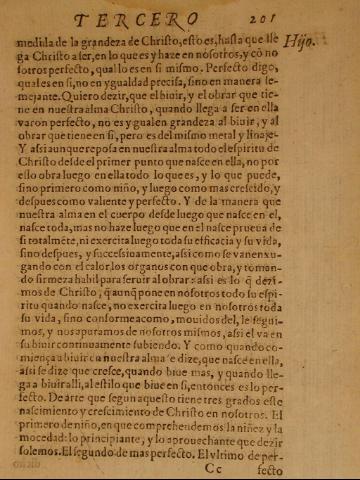 TERCERO 201
medida de la grandeza de Christo, esto es, hasta que lle Hijo.
ga Christo a ser, en lo que es y haze en nosotros, y cõ no
sotros perfecto, qual lo es en si mismo. Perfecto digo,
qual es en si, no en ygualdad precisa, sino en manera se-
mejante. Quiero dezir, que el biuir, y el obrar que tie-
ne en nuestra alma Christo, quando llega a ser en ella
varon perfecto, no es ygual en grandeza al biuir, y al
obrar que tiene en si, pero es del mismo metal y linaje.
Y assi aunque reposa en nuestra alma todo el espiritu de
Christo desde el primer punto que nasce en ella, no por
esso obra luego en ella todo lo que es, y lo que puede,
sino primero como niño, y luego como mas crescido, y
despues como valiente y perfecto. Y de la manera que
nuestra alma en el cuerpo desde luego que nasce en el,
nasce toda, mas no haze luego que en el nasce prueua de
si totalmẽte, ni exercita luego toda su efficacia y su vida,
sino despues, y successiuamente, assi como se van enxu-
gando con el calor los organos con que obra, y toman-
do firmeza habil para seruir al obrar: assi es lo q̃ dezi-
mos de Christo, q̃ aunq̃ pone en nosotros todo su espi-
ritu quando nasce, no exercita luego en nosotros toda
su vida, sino conforme a como, mouidos del, le segui-
mos, y nos apuramos de nosotros mismos, assi el va en
su biuir continuamente subiendo. Y como quando co-
miença a biuir en nuestra alma se dize, que nasce en ella,
assi se dize que cresce, quando biue mas, y quando lle-
ga a biuir alli, al estilo que biue en si, entonces es lo per-
fecto. De arte que segun aquesto tiene tres grados este
nascimiento y crescimiento de Christo en nosotros. El
primero de niño, en que comprehendemos la niñez y la
mocedad: lo principiante, y lo aprouechante que dezir
solemos. El segundo de mas perfecto. El vltimo de per-
Cc fecto